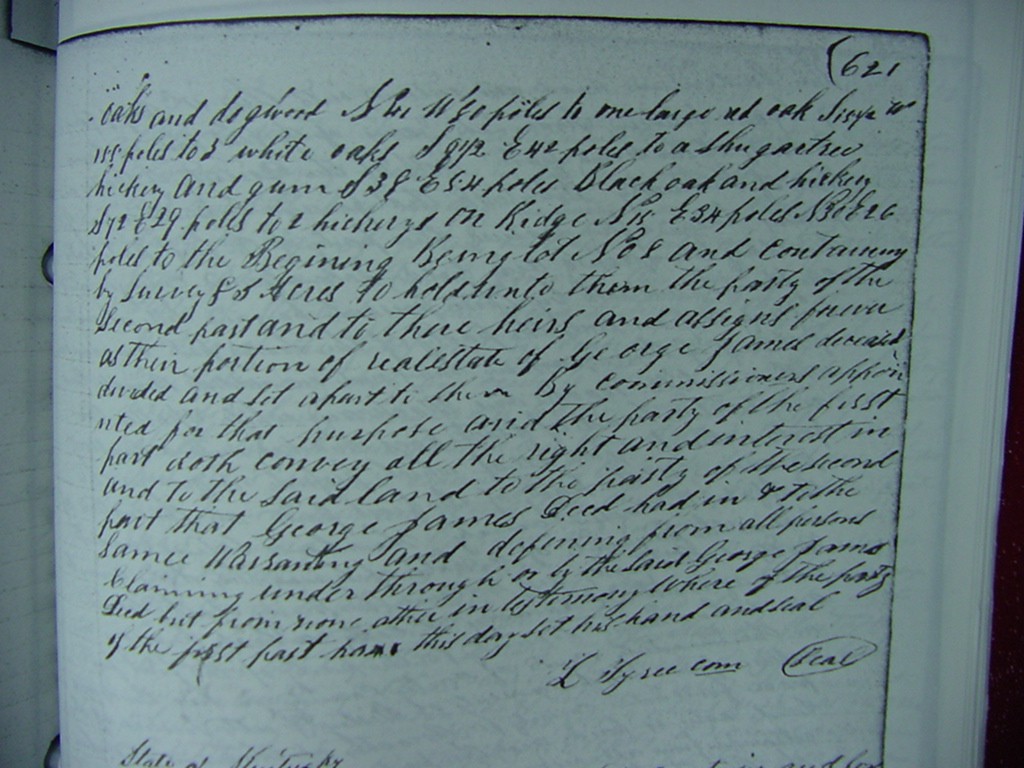 (621
oaks and dogwood N W 50 poles to one large red oak S W
poles to 3 white oaks S E 42 poles to a Shugartree
hickory and gum S 38 E 54 poles Black oak and hickory
E 29 poles to 2 hickerys on Ridge N E 34 poles N 30 E 26
poles to the Begining Being lot No 8 and containing
by Survey Acres To hold unto them the party of the
Second part and to there heirs and assigns forever
as their portion of realestate of George James deceased
divided and set apart to them By commissioners appoi
nted for that purpose and the party of the first
part doth convey all the right and interest in
and to the said land to the party of the second
part that George James Decd had in & to the
same Warranting and defening from all persons
Claiming under through or by the said George James
Decd but from none other in testimony Where of the party
of the first part has this day set his hand and seal
L Tyree com (Seal)
State of Kentucky